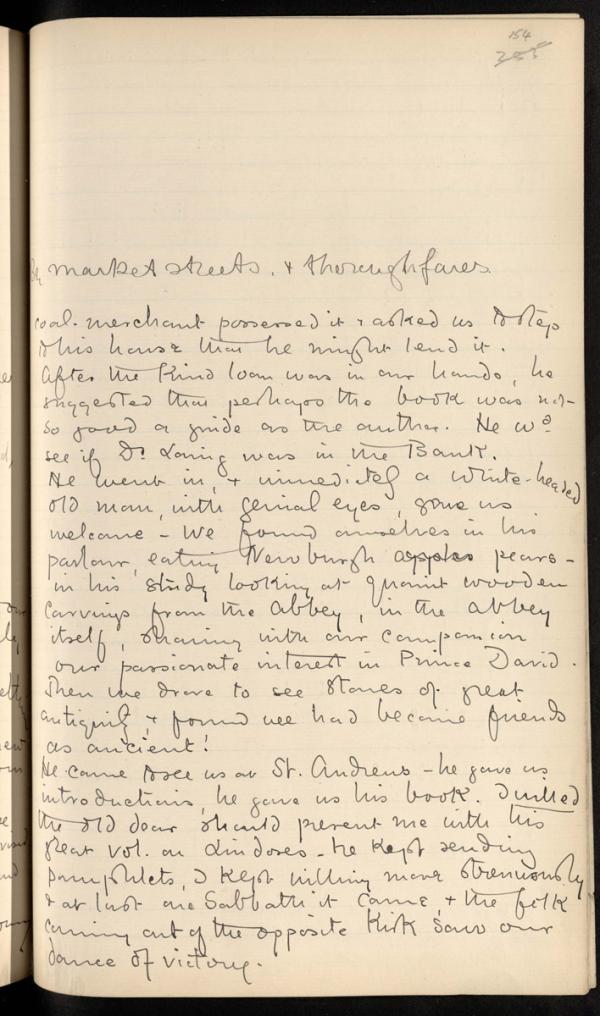 154
By market streets, & thoroughfares
coal-merchant possessed it & asked us to step
to his house that he might lend it.
After the kind loan was in our hands, he
suggested that perhaps the book was not
so good a guide as the author. He wd
see if Dr Laing was in the Bank.
He went in, & immediately a white-headed
old man, with genial eyes, gave us
welcome – We found ourselves in his
parlour, eating Newburgh apples pears –
in his study looking at quaint wooden
carvings from the Abbey, in the Abbey
itself, sharing with our companion
our passionate interest in Prince David.
Then we drove to see stones of great
antiquity, & found we had become friends
as ancient!
He came to see us at St. Andrews – he gave us
introductions, he gave us his book. I willed
the old dear should present me with his
great vol. on Lindores – he kept sending
pamphlets, I kept willing more strenuously
& at last one Sabbath it came, & the folk
coming out of the opposite Kirk saw our
dance of victory.